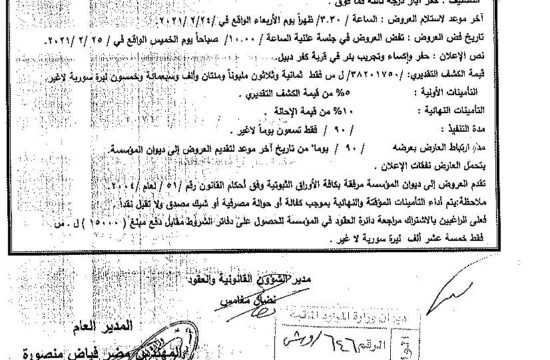 التصنيف : حفر آبار درجة ثالثة فما فوق .
آخر موعد لاستلام العروض : الساعة /٣.٣٠/ ظهراً يوم الأربعاء الواقع في /٢٤/ ٢٠٢١/٢.
تاريخ فض العروض : تفض العروض في جلسة علنية الساعة /١٠.٠٠/ صباحاً يوم الخميس الواقع في /٢٥/ ٢٠٢١/٢.
نص الإعلان : حفر وإكساء وتجريب بئر في قرية كفر دبيل.
قيمة الكشف التقديري: /٣٨٢٠١٧٥٠/ ل س فقط ثمانية وثلاثون مليوناً ومئتان وألف وسبعمائة وخمسون ليرة سورية لاغير.
التأمينات الأولية : ٥% من قيمة الكشف التقديري .
التأمينات النهائية : ١٠% من قيمة الإحالة .
مدة التنفيذ : / ٩٠ / فقط تسعون يوماً لاغير .
مدة ارتباط العارض بعرضه / ٩٠ / يوماً من تاريخ آخر موعد لتقديم العروض إلى ديوان المؤسسة.
يتحمل العارض نفقات الإعلان .
تقدم العروض إلى ديوان المؤسسة مرفقة بكافة الأوراق الثبوتية وفق أحكام القانون رقم /٥١/ لعام /٢٠٠٤.
ملاحظة:يتم أداء التأمينات المؤقتة والنهائية بموجب كفالة أو حوالة مصرفية أو شيك مصدق ولا تقبل نقداً .
فعلى الراغبين بالاشتراك مراجعة دائرة العقود في المؤسسة للحصول على دفاتر الشروط مقابل دفع مبلغ ( ١٥٠٠٠ ) ل . س
فقط خمسة عشر ألف ليرة سورية لا غير .
مدير الشؤون القانونية والعقود
نضال مغامس
ديوان وزارة الموارد المائية
الرقم ٦٤٦/
المدير العام
المهندس مضر فياض منصورة